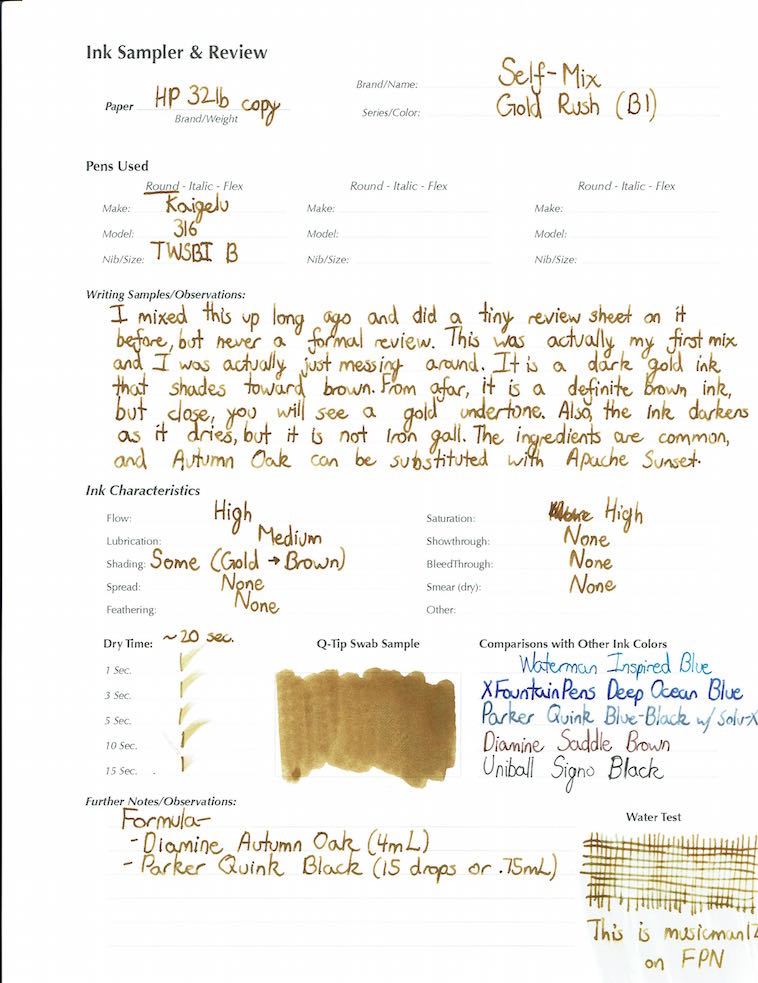 Ink Sampler & Review
Paper HP 32lb copy
Brand/Weight
Brand/Name: Self-Mix
Series/Color: Gold Rush (B1)
Pens Used
Round - Italic - Flex
Make: Kaigelu
Model: 316
Nib/Size: TWSBI B
Round - Italic - Flex
Make:
Model:
Nib/Size:
Round - Italic - Flex
Make:
Model:
Nib/Size:
Writing Samples/Observations:
I mixed this up long ago and did a tiny review sheet on it
before, but never a formal review. This was actually my first mix
and I was actually just messing around. It is a dark gold ink
that shades toward brown. From afar, it is a definite brown ink,
but close, you will see a gold undertone. Also, the ink darkens
as it dries, but it is not Iron gall. The ingredients are common,
and Autumn Oak can be substituted with Apache Sunset.
Ink Characteristics
Flow: High
Lubrication: Medium
Shading: Some (Gold → Brown)
Spread: None
Feathering: None
Saturation: High
Showthrough: None
BleedThrough: None
Smear (dry): None
Other:
Dry Time: ~20 sec.
1 Sec.
3 Sec.
5 Sec.
10 Sec.
15 Sec.
Q-Tip Swab Sample
Comparisons with Other Ink Colors
Waterman Inspired Blue
XFountainPens Deep Ocean Blue
Parker Quink Blue-Black w/ Solv-X
Diamine Saddle Brown
Uniball Signo Black
Further Notes/Observations:
Formula-
- Diamine Autumn Oak (4mL)
- Parker Quink Black (15 drops or .75mL)
Water Test
This is musicman17
on FPN